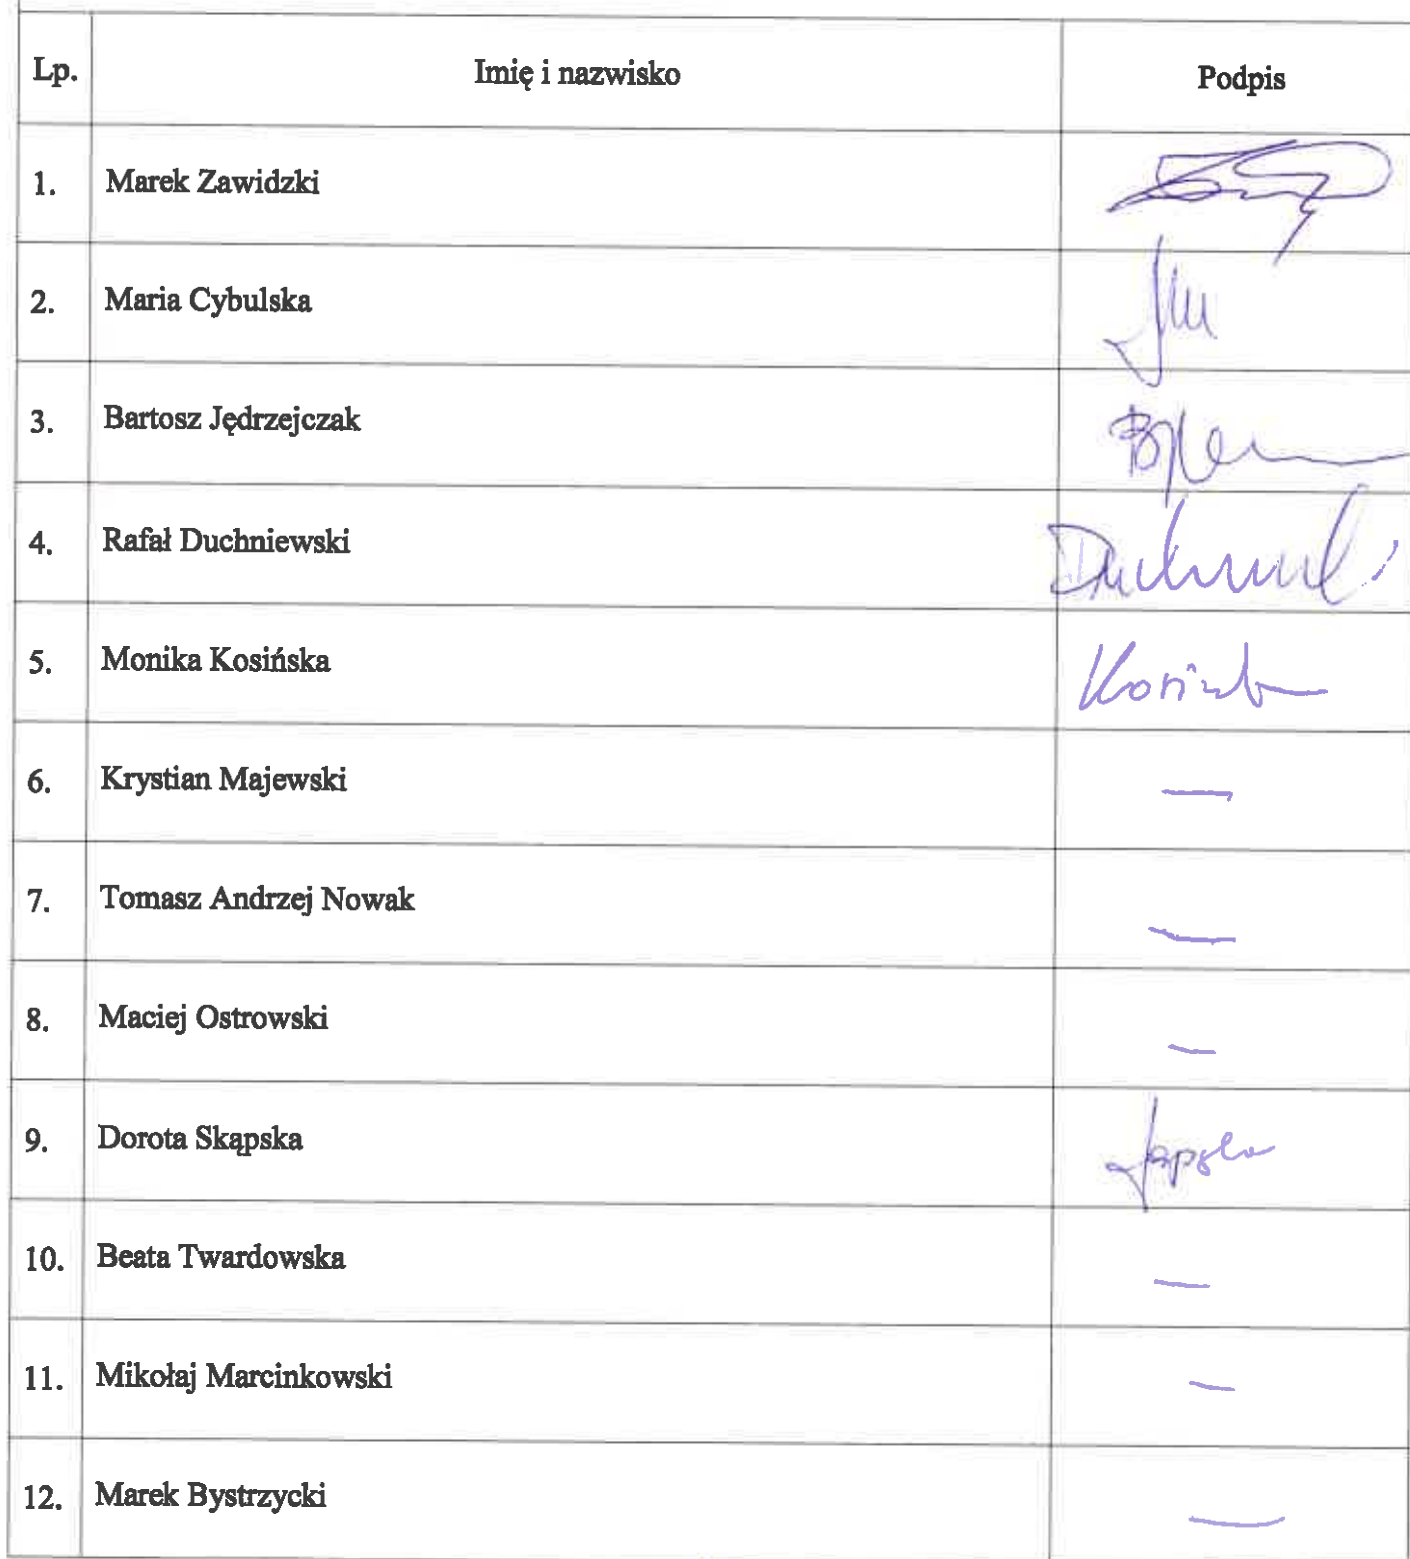 Lp. Imię i nazwisko Podpis
1. Marek Zawidzki
2. Maria Cybulska
3. Bartosz Jędrzejczak
4. Rafał Duchniewski
5. Monika Kosińska
6. Krystian Majewski —
7. Tomasz Andrzej Nowak —
8. Maciej Ostrowski —
9. Dorota Skąpska
10. Beata Twardowska —
11. Mikołaj Marcinkowski —
12. Marek Bystrzycki —